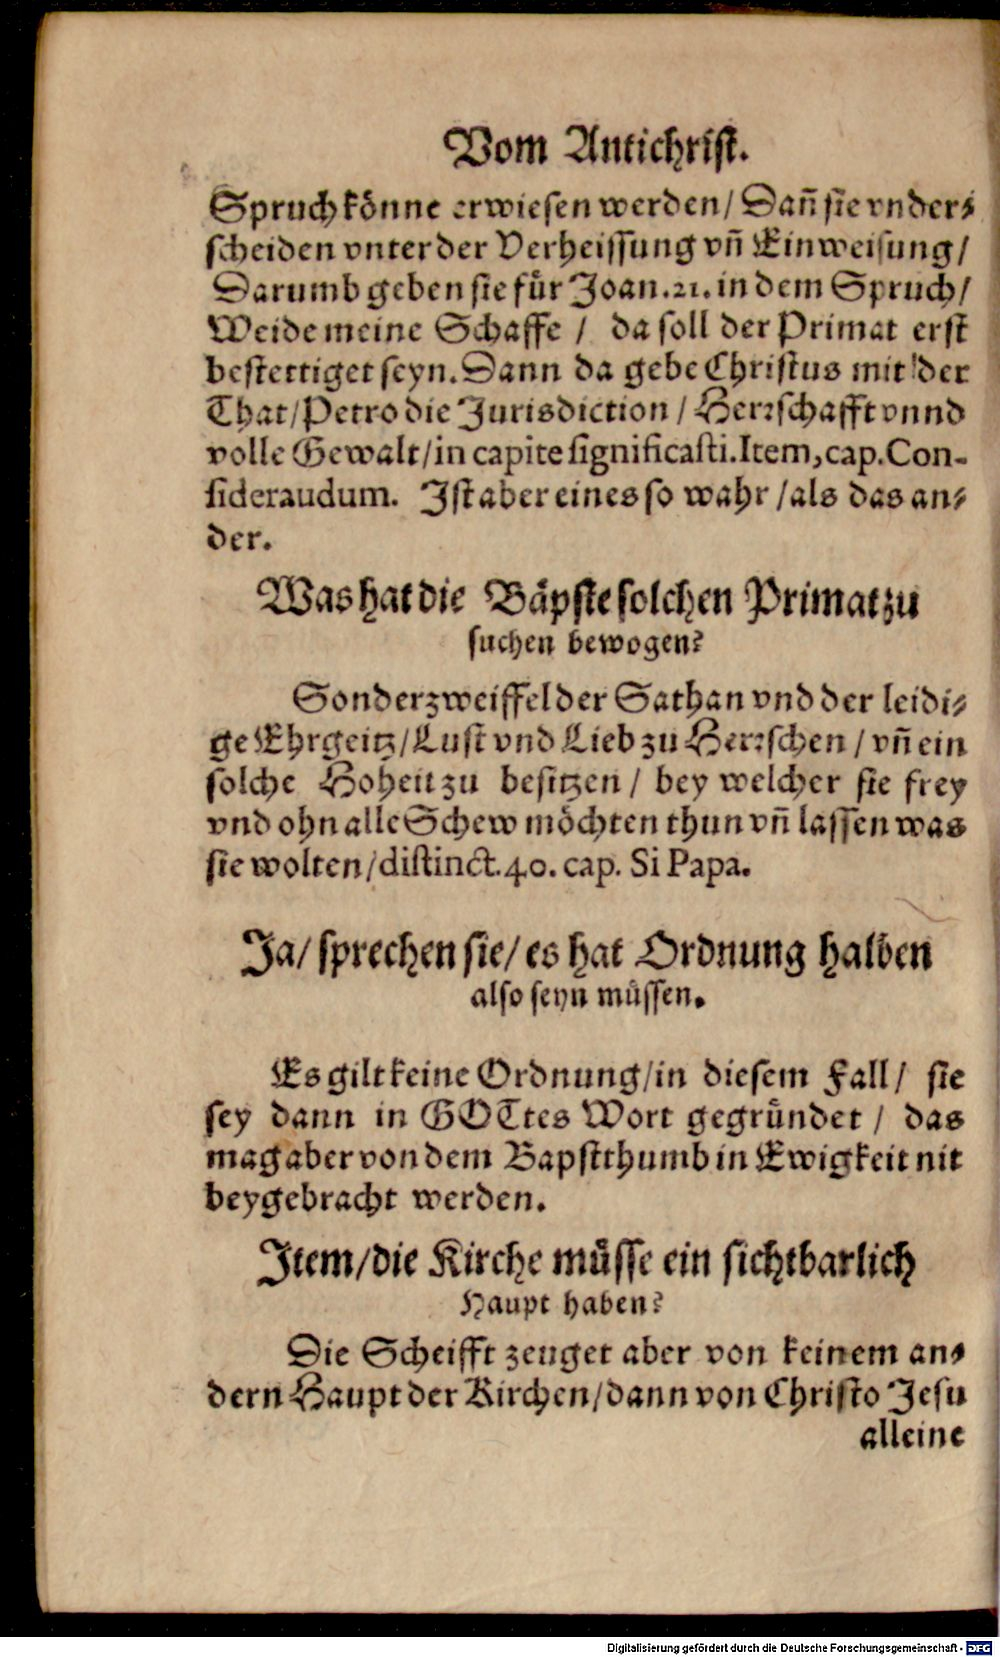 Vom Antichrist.
Spruch könne erwiesen werden/ Dañ sie vnder⸗
scheiden vnter der Verheissung vñ Einweisung/
Darumb geben sie für Joan. 21. in dem Spruch/
Weide meine Schaffe / da soll der Primat erst
bestettiget seyn. Dann da gebe Christus mit der
That/ Petro die Jurisdiction / Herrschafft vnnd
volle Gewalt/ in capite significasti. Item, cap. Con-
sideraudum. Jst aber eines so wahr / als das an⸗
der.
Was hat die Bäpste solchen Primat zu
suchen bewogen?
Sonder zweiffel der Sathan vnd der leidi⸗
ge Ehrgeitz/ Lust vnd Lieb zu Herrschen / vñ ein
solche Hoheit zu besitzen / bey welcher sie frey
vnd ohn alle Schew möchten thun vñ lassen was
sie wolten/ distinct. 40. cap. Si Papa.
Ja/ sprechen sie/ es hat Ordnung halben
also seyn müssen.
Es gilt keine Ordnung/ in diesem Fall / sie
sey dann in GOTtes Wort gegründet / das
mag aber von dem Bapstthumb in Ewigkeit nit
beygebracht werden.
Jtem/ die Kirche müsse ein sichtbarlich
Haupt haben?
Die Scheifft zeuget aber von keinem an⸗
dern Haupt der Kirchen/ dann von Christo Jesu
alleine
Digitalisierung gefördert durch die Deutsche Forschungsgemeinschaft - DFG